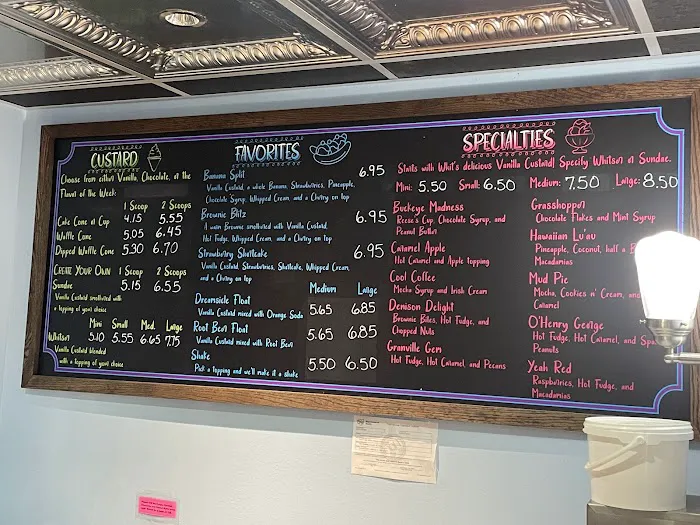 CUSTARD
Choose from either Vanilla, Chocolate, or the
Flavor of the Week:
1 Scoop 2 Scoops
Cake Cone or Cup 4.15 5.55
Waffle Cone 5.05 6.45
Dipped Waffle Cone 5.30 6.70
Create Your Own 1 Scoop 2 Scoops
Sundae 5.15 6.55
Vanilla Custard smothered with
a topping of your choice
Mini Small Med. Large
Whitser 5.10 5.55 6.65 7.75
Vanilla Custard blended
with a topping of your choice
FAVORITES
Banana Split 6.95
Vanilla Custard, a whole Banana, Strawberries, Pineapple,
Chocolate Syrup, Whipped Cream, and a Cherry on top
Brownie Blitz 6.95
A warm Brownie smothered with Vanilla Custard,
Hot Fudge, Whipped Cream, and a Cherry on top
Strawberry Shortcake 6.95
Vanilla Custard, Strawberries, Shortcake, Whipped Cream,
and a Cherry on top
Medium Large
Dreamsicle Float 5.65 6.85
Vanilla Custard mixed with Orange Soda
Root Beer Float 5.65 6.85
Vanilla Custard mixed with Root Beer
Shake 5.50 6.50
Pick a topping and we'll make it a shake
SPECIALTIES
Starts with Whit's delicious Vanilla Custard! Specify Whitser or Sundae.
Mini: 5.50 Small: 6.50 Medium: 7.50 Large: 8.50
Buckeye Madness
Reese's Cup, Chocolate Syrup, and
Peanut Butter
Caramel Apple
Hot Caramel and Apple topping
Cool Coffee
Mocha Syrup and Irish Cream
Denison Delight
Brownie Bites, Hot Fudge, and
Chopped Nuts
Granville Gem
Hot Fudge, Hot Caramel, and Pecans
Grasshopper
Chocolate Flakes and Mint Syrup
Hawaiian Lu'au
Pineapple, Coconut, half a B
Macadamias
Mud Pie
Mocha, Cookies n' Cream, and
Caramel
O'Henry George
Hot Fudge, Hot Caramel, and
Peanuts
Yeah Red
Raspberries, Hot Fudge, and
Macadamias